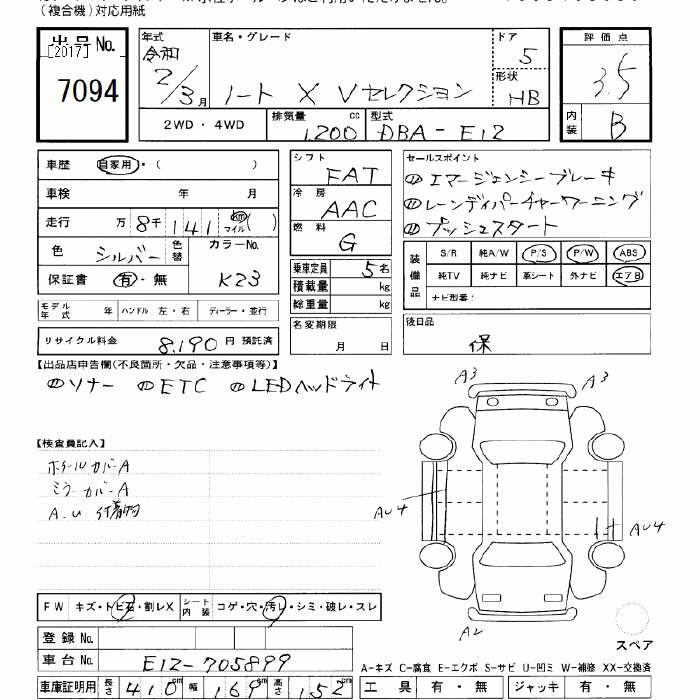 (複合機)対応用紙
出品No.
[2017]
7094
年式
令和
2/3月
車名・グレード
ノート X Vセレクション
ドア
5
形状
HB
評価点
3.5
内装
B
2WD・4WD
排気量 cc
1,200
型式
DBA-E12
車歴 自家用・( )
車検 年 月
走行 万 8千 141 km マイル ( )
色 シルバー 色替
カラーNo.
K23
保証書 有・無
モデル年式 年 ハンドル 左・右 ディーラー・並行
リサイクル料金 8,190 円 預託済
シフト
FAT
冷房
AAC
燃料
G
乗車定員 5名
積載量 kg
総重量 kg
名変期限
月 日
セールスポイント
エマージェンシーブレーキ
レーンディパーチャーワーニング
プッシュスタート
装備品
S/R 純A/W P/S P/W ABS
純TV 純ナビ 革シート 外ナビ エアB
ナビ型番:
後日品
保
【出品店申告欄(不良箇所・欠品・注意事項等)】
ソナー ETC LEDヘッドライト
【検査員記入】
ホイールカバーA
ミラーカバーA
A.U 付着物
A3
A3
AU4
AU4
A2
スペア
FW キズ・トビ石・割レX シート内装 コゲ・穴・汚レ・シミ・破レ・スレ
登録No.
車台No. E12-705899
車庫証明用 長さ 410cm 幅 169cm 高さ 152
A-キズ C-腐食 E-エクボ S-サビ U-凹ミ W-補修 XX-交換済
工具 有・無 ジャッキ 有・無